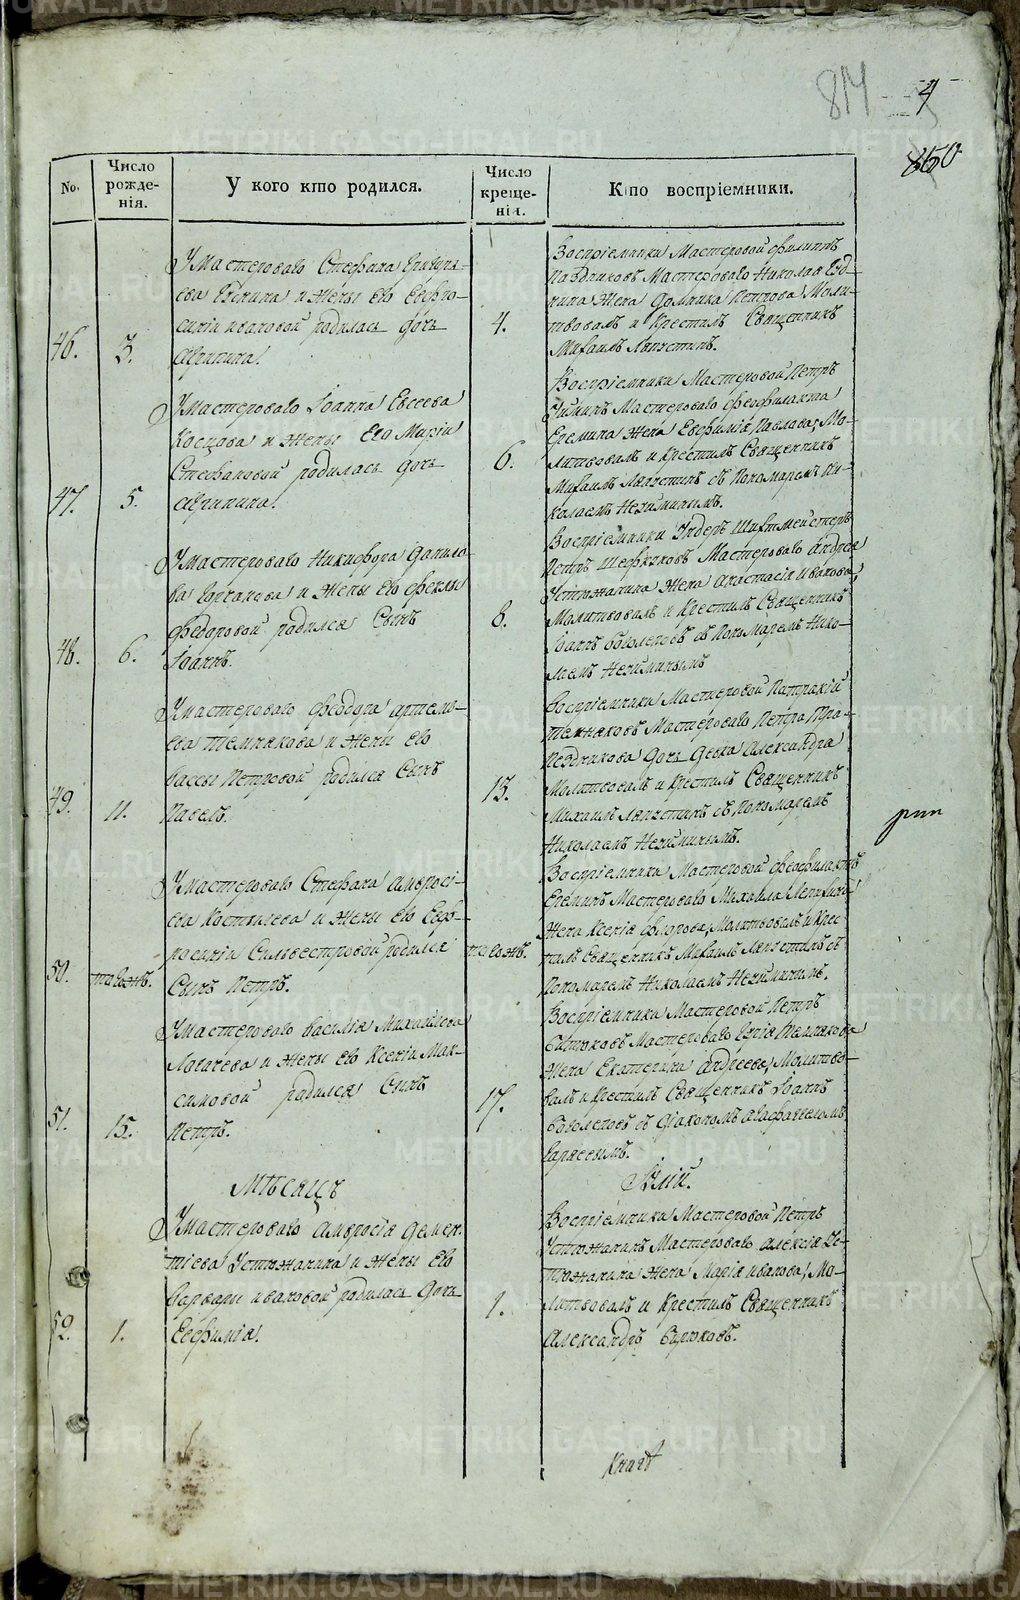 814
4
850
No.
Число рожде-нія.
У кого кто родился.
Число креще-нія.
Кто воспріемники.
46.
3.
У Мастероваго Стефана Григорь-
ева и жены его Евфро-
синіи Ивановой родилась дочь
Агрипина.
4.
Воспріемники Мастеровой Филиппъ
Мастероваго Николая
жена Домника Петрова, Моли-
твовалъ и Крестилъ Священникъ
Михаилъ Ляпустинъ.
47.
5.
У Мастероваго Іоанна Евсеева
Косцова и жены Его Маріи
Стефановой родилась дочь
Агрипина.
6.
Воспріемники Мастеровой Петръ
Мастероваго Феофилакта
Еремина жена Евфимія Павлова, Мо-
литвовалъ и крестилъ Священникъ
Михаилъ Ляпустинъ съ Пономаремъ Ни-
колаемъ
48.
6.
У Мастероваго Никифора Данило-
ва и жены его Феклы
Федоровой родился Сынъ
Іоаннъ.
8.
Воспріемники Ундеръ Шихтмейстеръ
Петръ Мастероваго Андрея
Устюжанина жена Анастасія Иванова,
Молитвовалъ и Крестилъ Священникъ
Іоаннъ Боголеповъ съ Пономаремъ Нико-
лаемъ
49.
11.
У мастероваго Феодора Артемь-
ева Темнякова и жены Его
Вассы Петровой родился Сынъ
Павелъ.
13.
Воспріемники Мастеровой Патрикій
Темняковъ Мастероваго Петра
дочь девка Александра
Молитвовалъ и Крестилъ Священникъ
Михаилъ Ляпустинъ съ Пономаремъ
Николаемъ
50.
тогожъ.
У мастероваго Стефана Амвросі-
ева Костылева и жены Его Евф-
росиніи Сильвестровой родился
Сынъ Петръ.
тогожъ.
Воспріемники Мастеровой Феофилактъ
Ереминъ Мастероваго Михаила
жена Ксенія Фролова, Молитвовалъ и Крес-
тилъ Священникъ Михаилъ Ляпустинъ съ
Пономаремъ Николаемъ
51.
15.
У мастероваго Василія Михайлова
Логачева и жены его Ксеніи Мак-
симовой родился Сынъ
Петръ.
17.
Воспріемники Мастеровой Петръ
Мастероваго Темнякова
жена Екатерина Андреева, Молитво-
валъ и Крестилъ Священникъ Іоаннъ
Боголеповъ съ Діакономъ
Месяцъ
Іюлій.
52.
1.
У мастероваго Амвросія Демен-
тіева Устюжанина и жены Его
Варвары Ивановой родилась дочь
Евфимія.
1.
Воспріемники Мастеровой Петръ
Устюжанинъ Мастероваго Алексія Ус-
тюжанина жена Марія Иванова, Мо-
литвовалъ и Крестилъ Священникъ
Александръ Бирюковъ.
METRIKI.GASO-URAL.RU